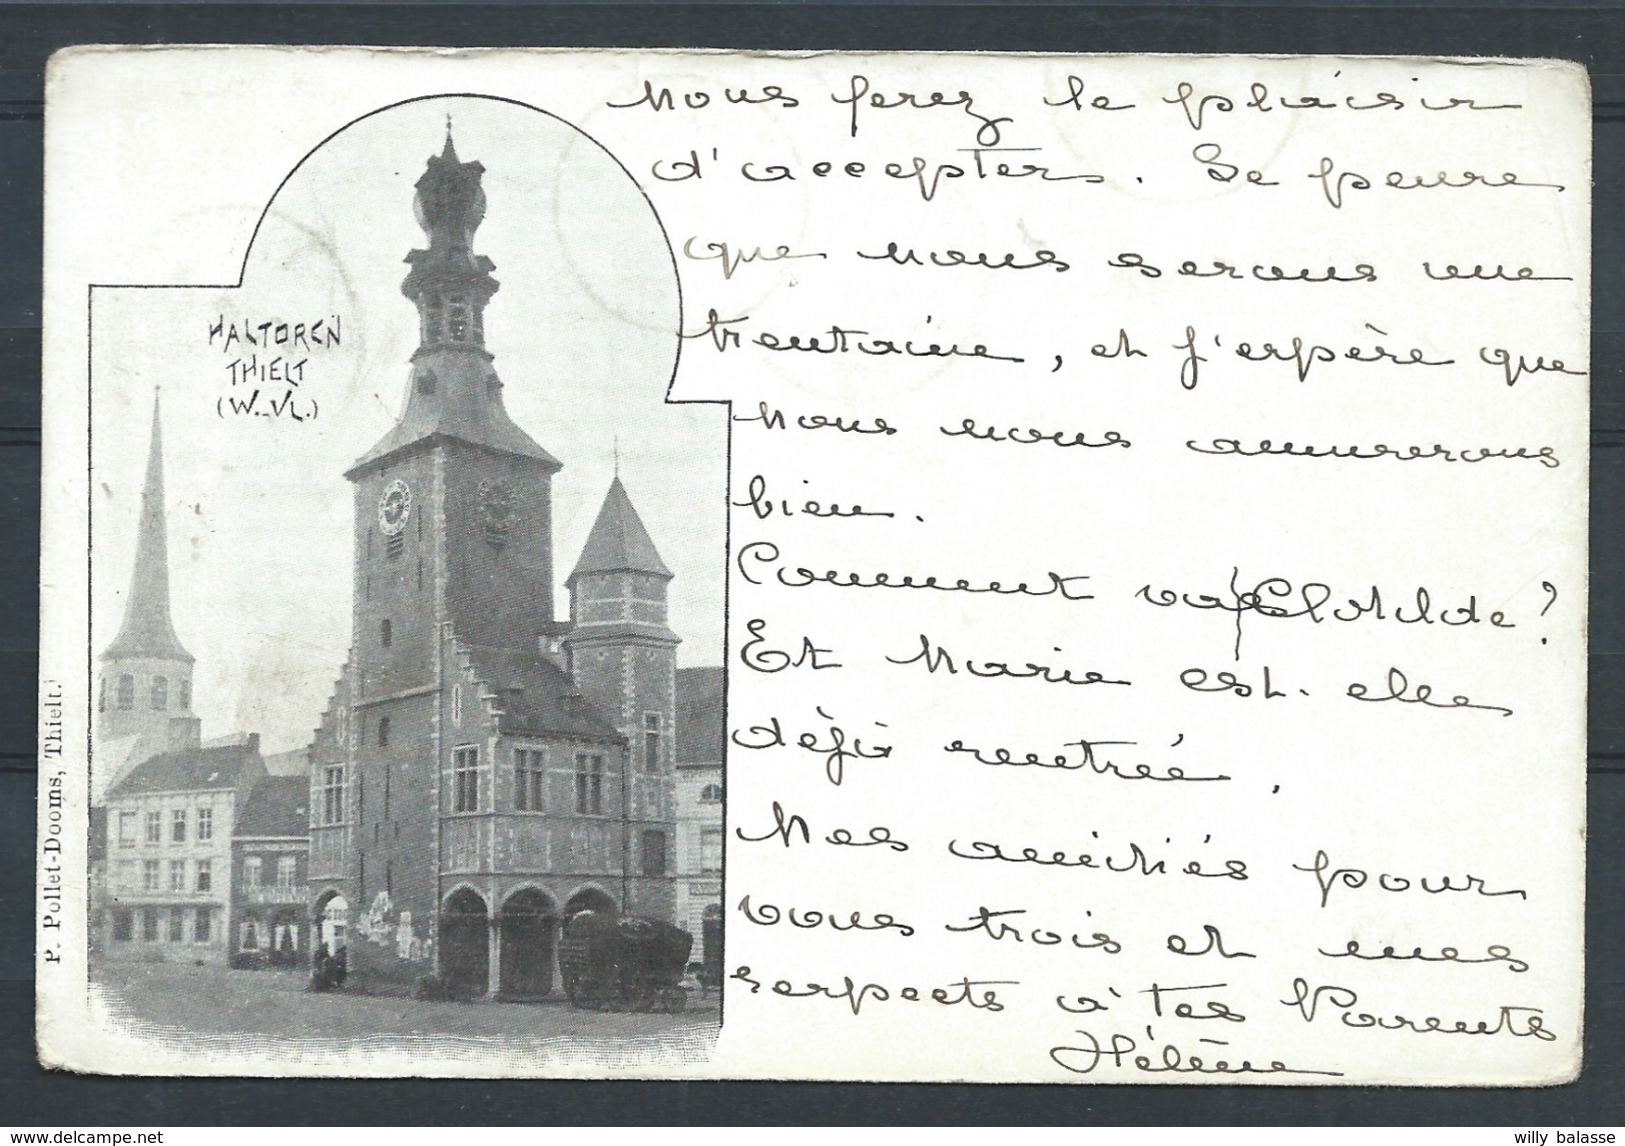 HALTOREN
THIELT
(W.-VL.)
P. Pollet-Dooms, Thielt.
nous ferez le plaisir
d'accepter. Je pense
que nous serons une
trentaine, et j'espère que
nous nous amuserons
bien.
Comment va Clotilde ?
Et Marie est-elle
déjà rentrée.
Mes amitiés pour
vous trois et mes
respects à tes Parents
Hélène
willy balasse